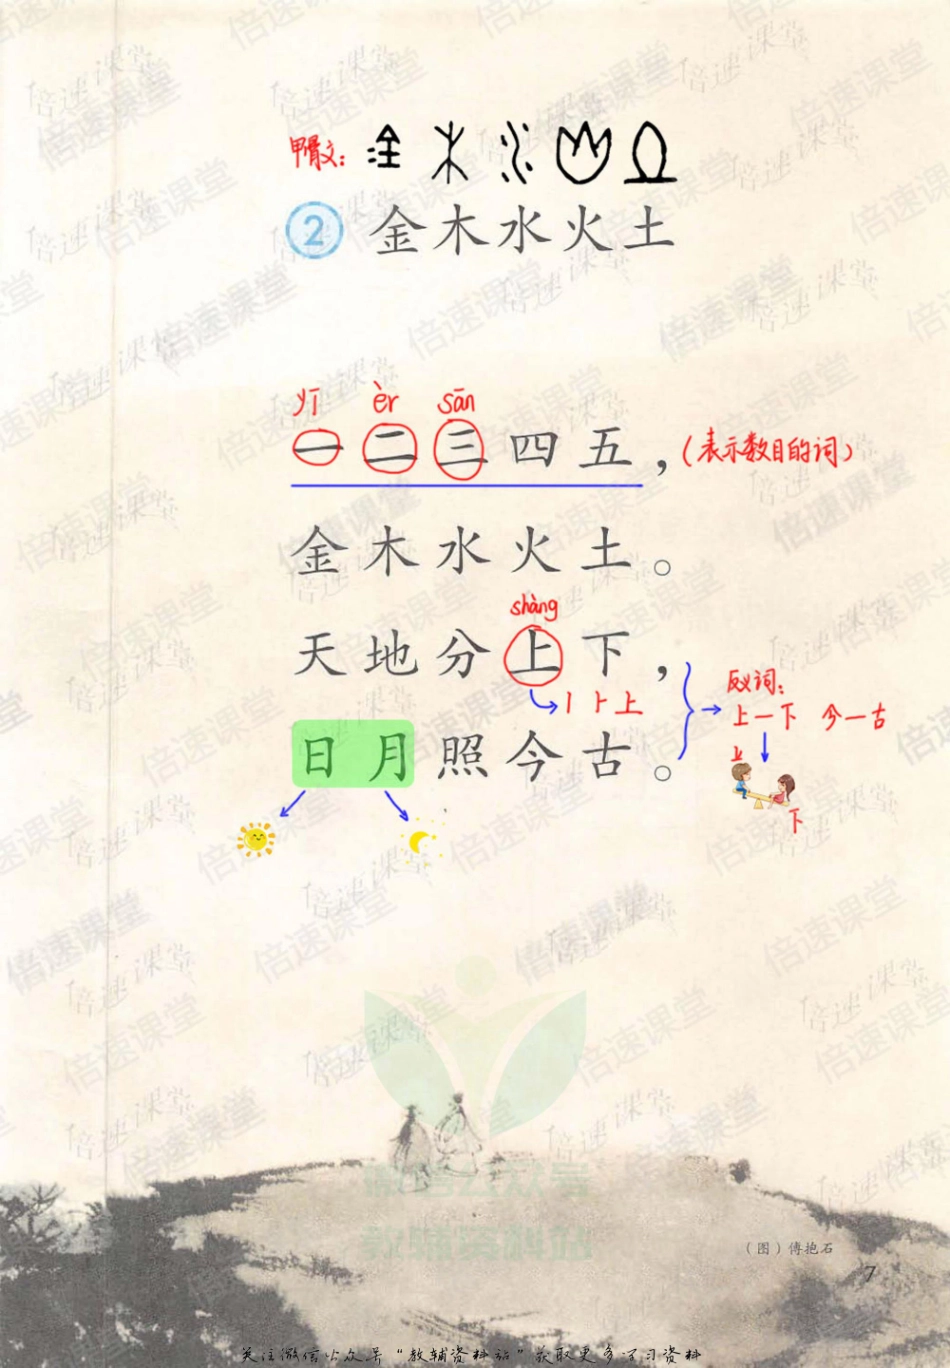 甲骨文：
2 金木水火土
yī èr sān
一二三四五，（表示数目的词）
金木水火土。
shàng
天地分上下，
丨⺊上
反义词：
上—下 今—古
上
下
日月照今古。
（图）傅抱石
7
微信公众号
教辅资料站
关注微信公众号“教辅资料站”获取更多学习资料
倍速课堂